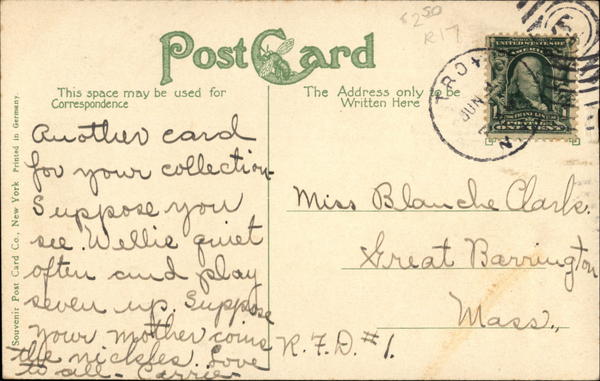 $2.50
R17
Post Card
This space may be used for
Correspondence
The Address only to be
Written Here
TROY
JUN
N.
UNITED STATES OF
AMERICA
FRANKLIN
ONE CENT
Souvenir Post Card Co., New York Printed in Germany.
Another card
for your collection.
Suppose you
see Wellie quiet
often and play
seven up. Suppose
your mother coins
the nickles. Love
to all - Carrie -
Miss Blanche Clark.
Great Barrington
Mass.,
R.F.D. #1.